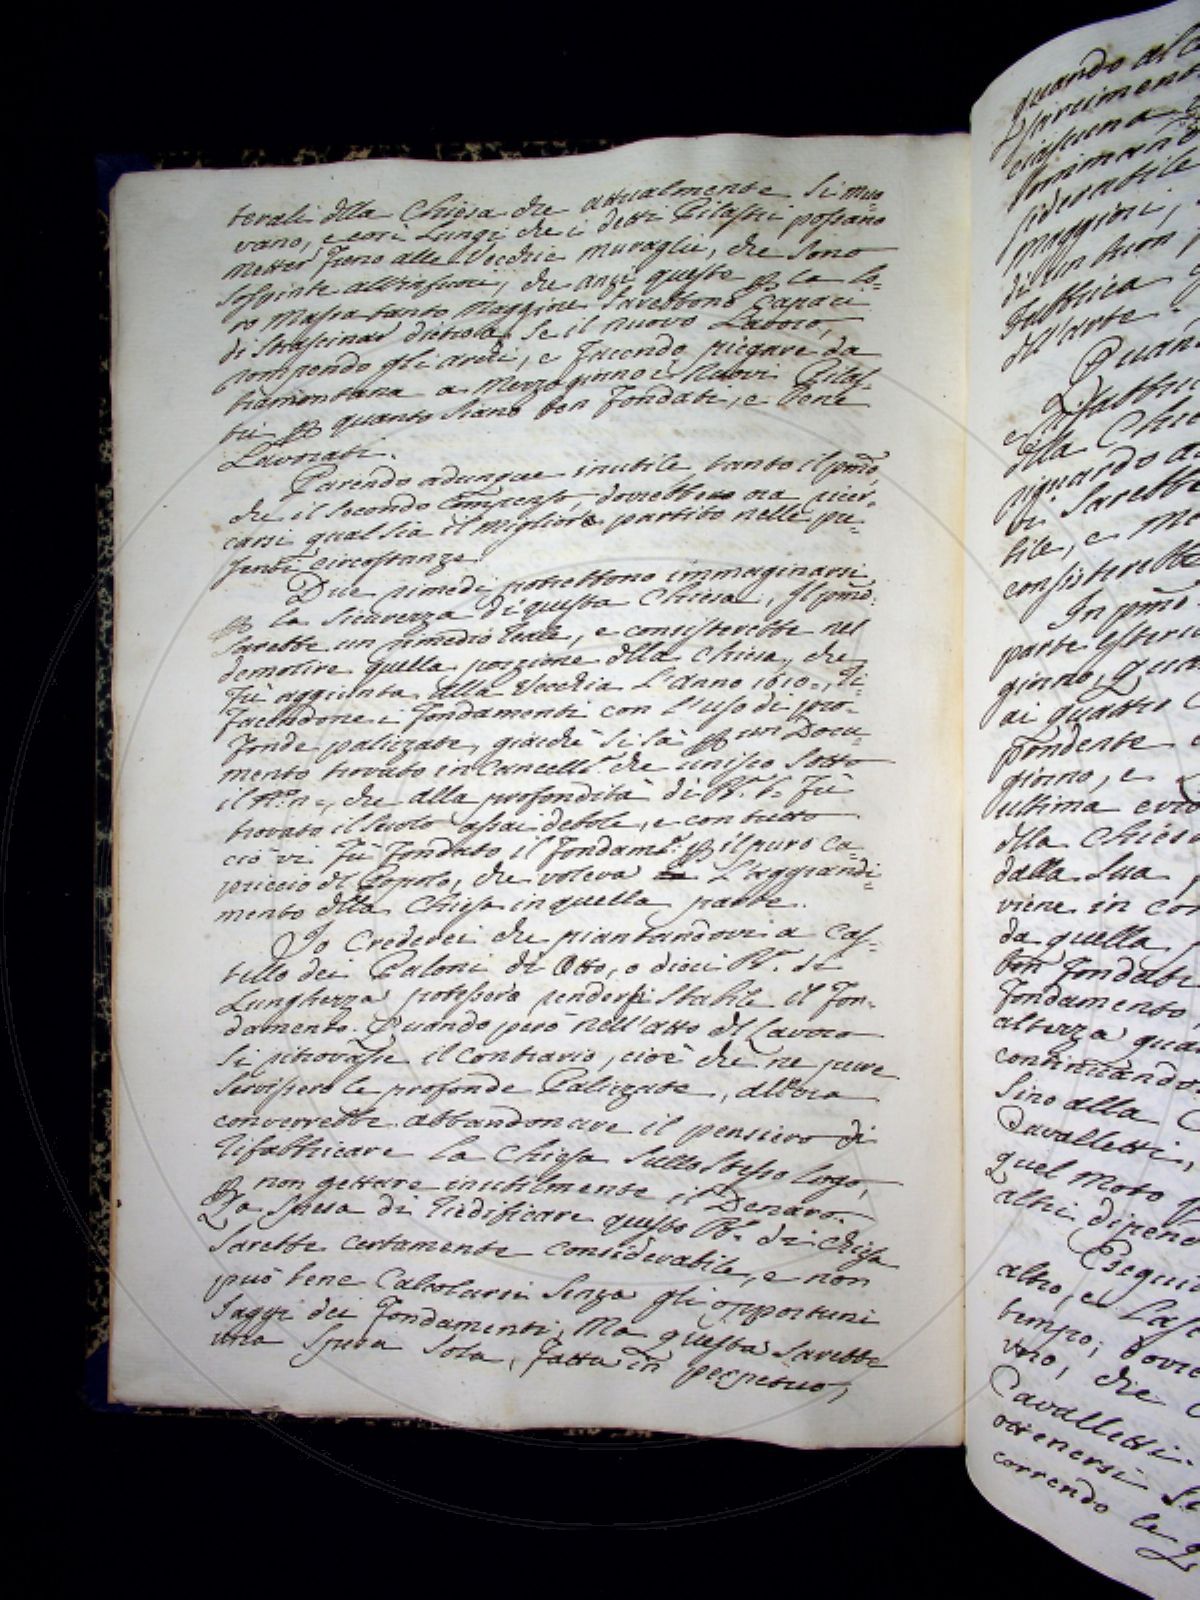 terali dlla Chiesa che attualmente si muo=
vano, e così Lungi che i detti Pilastri possano
metter freno alle Vecchie muraglie, che sono
sospinte all'infuori, che anzi queste per la lo=
ro Massa tanto Maggiore sarebbono capaci
di strascinar dietro a se il nuovo Lavoro,
rompendo gli archi, e facendo piegare da
tramontana a Mezzogiorno i Nuovi Pilas=
tri per quanto siano ben fondati, e bene
Lavorati.
Parendo adunque inutile tanto il pmo,
che il secondo Compenso, dovrebbesi ora ricer=
carsi qual sia il migliore partito nelle pre=
senti circostanze.
Due rimedj potrebbono immaginarsi
per la sicurezza di questa Chiesa, Il pmo:
sarebbe un rimedio reale, e consisterebbe nel
demolire quella porzione dlla Chiesa, che
fù aggiunta alla Vecchia L'Anno 1610=, ri=
facendone i fondamenti con l'uso di pro=
fonde palizate, giacchè si sà per un Docu=
mento trovato in Cancell.a che unisco sotto
il che alla profondità di
trovato il suolo assai debole, e con tutto
ciò vi fù fondato il fondam.to per il puro ca=
priccio dl Popolo, che voleva L'aggrandi=
mento dlla Chiesa in quella parte.
Io Crederei che piantandovi a Cas=
tello dei Paloni di Otto, o dieci Br.a di
Lunghezza potessero rendersi stabile il fon=
damento. Quando però nell'atto dl Lavoro
si ritrovasse il contrario, cioè che ne pure
servissero le profonde Palizate, allora
converrebbe abbandonare il pensiero di
rifabbricare la Chiesa sullo stesso luogo,
per non gettare inutilmente il Denaro.
La spesa di riedificare questo di Chiesa
sarebbe certamente considerabile, e non
può bene Calcolarsi senza gli opportuni
saggi dei fondamenti, Ma questa sarebbe
una spesa sola, fatta in perpetuo,
quando
ciascuna
maggiori,
di un buon
fabbrica
dll'arte.
dlla Chie
riguardo
sarebbe
tile, e
consisterebbe
In pmo
parte esterio
giorno,
ai quattro
pondente
giorno, e
ultima
dlla Chiesa
dalla sua
viene in con
da quella
ben fondate
fondamento
altezza qua
continuando
Sino alla
Cavalletti,
quel Moto
altri dipen
Esegui
altro, e Lasc
tempo;
uno, che
Cavalletti
ottenersi
correndo le